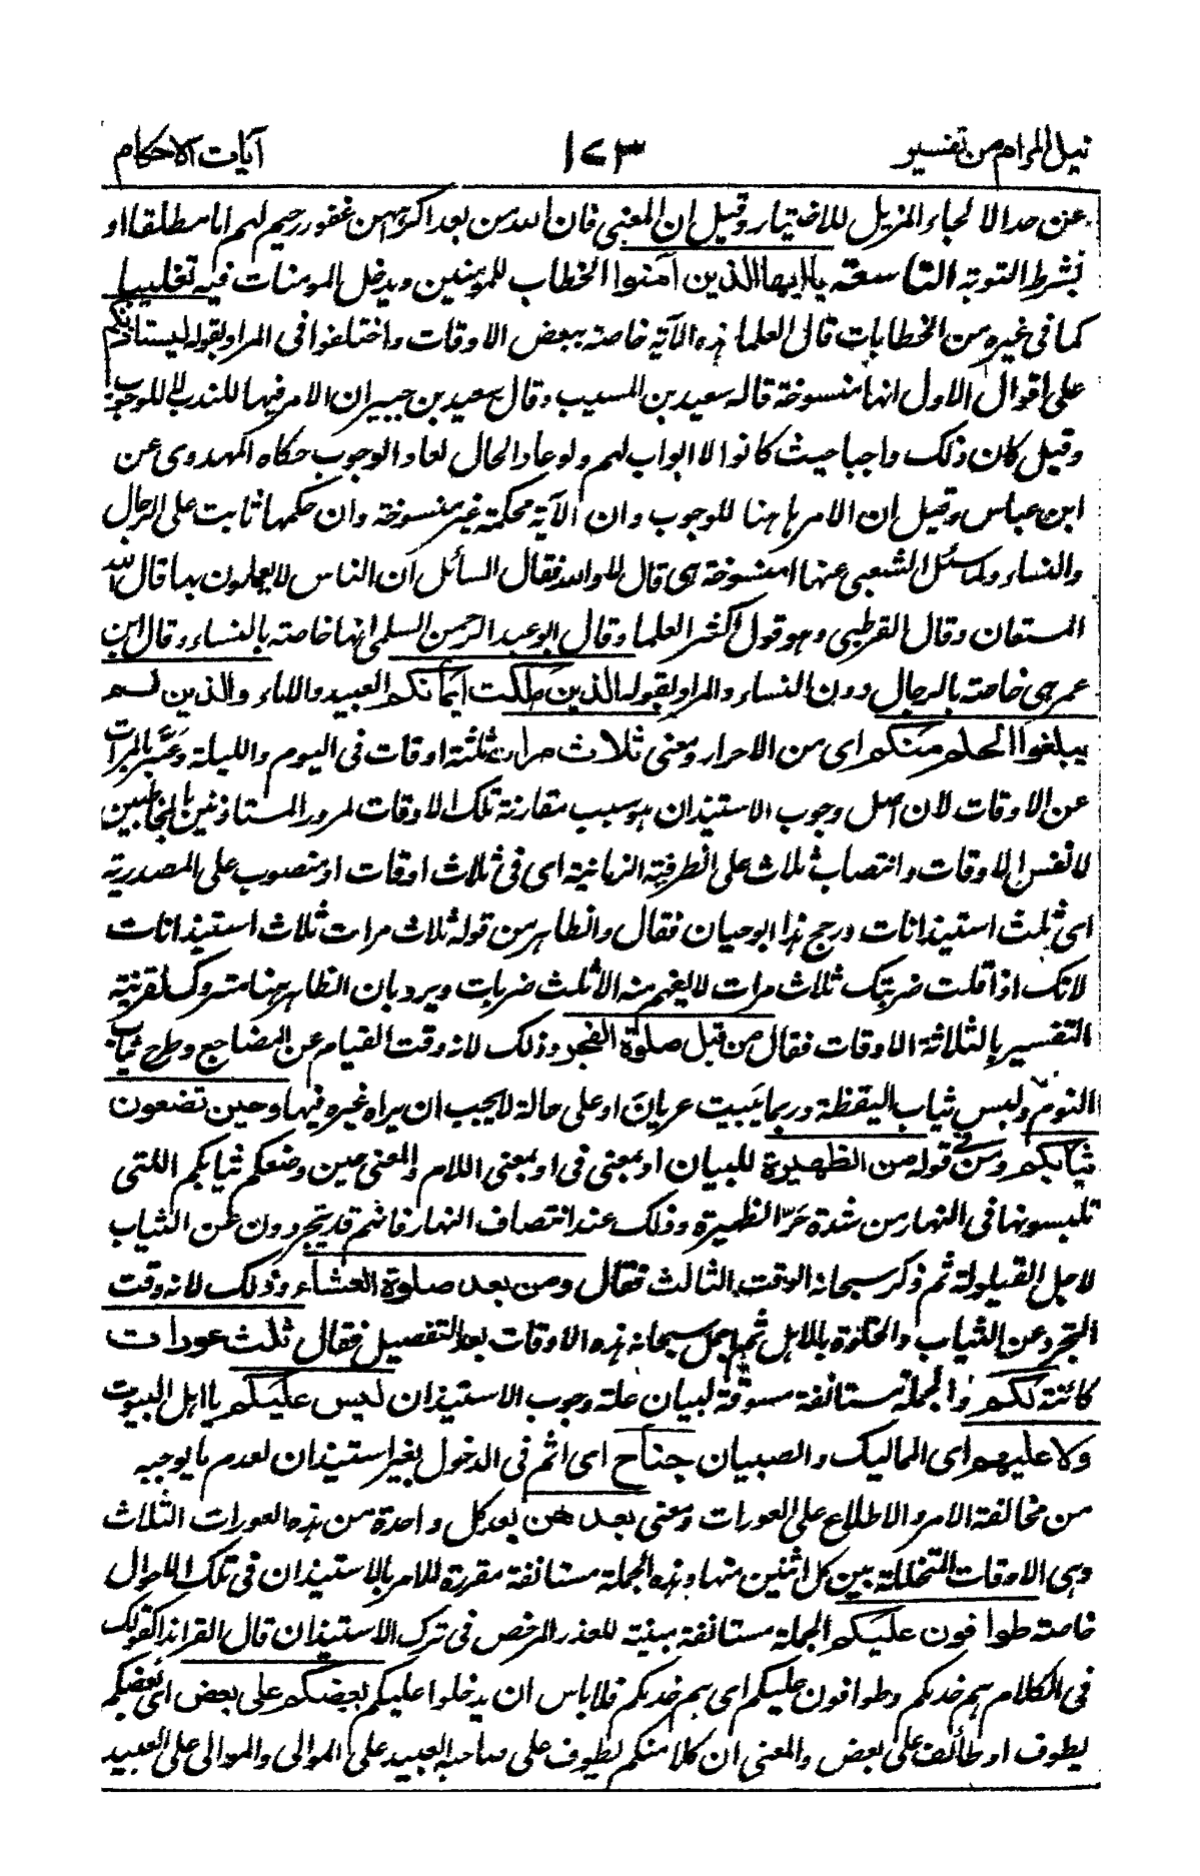 نيل المرام من تفسير ١٧٣ آيات الاحكام
عن حد الالجاء المزيل للاختيار وقيل ان المعنى فان الله من بعد اكراههن غفور رحيم لهم اما مطلقا او
بشرط التوبة التاسعة يا ايها الذين آمنوا الخطاب للمومنين ويدخل المومنات فيه تغليبا
كما فى غيره من الخطابات قال العلما هذه الآية خاصة ببعض الاوقات واختلفوا فى المراد بقوله ليستاذنكم
على اقوال الاول انها منسوخة قاله سعيد بن المسيب وقال سعيد بن جبير ان الامر فيها للندب لا للوجوب
وقيل كان ذلك واجبا حيث كانوا لا ابواب لهم ولو عاد الحال لعاد الوجوب حكاه المهدوى عن
ابن عباس وقيل ان الامر هاهنا للوجوب وان الآية محكمة غير منسوخة وان حكمها ثابت على الرجال
والنساء ولما سئل الشعبى عنها امنسوخة هى قال لا والله فقال السائل ان الناس لا يعملون بها قال الله
المستعان وقال القرطبى وهو قول اكثر العلما وقال ابو عبد الرحمن السلمى انها خاصة بالنساء وقال ابن
عمر هى خاصة بالرجال دون النساء والمراد بقوله الذين ملكت ايمانكم العبيد والاماء والذين لم
يبلغوا الحلم منكم اى من الاحرار ومعنى ثلاث مرات ثلثة اوقات فى اليوم والليلة وعبر بالمرات
عن الاوقات لان اصل وجوب الاستيذان هو سبب مقارنة تلك الاوقات لمرور المستاذنين بالمخاطبين
لا نفس الاوقات وانتصاب ثلاث على الظرفية الزمانية اى فى ثلاث اوقات او منصوب على المصدرية
اى ثلث استيذانات ورجح هذا ابو حيان فقال والظاهر من قوله ثلاث مرات ثلاث استيذانات
لانك اذا قلت ضربتك ثلاث مرات لا يفهم منه الا ثلث ضربات ويرد بان الظاهر هنا متروك لقرينة
التفسير بالثلاثة الاوقات فقال من قبل صلوة الفجر وذلك لانه وقت القيام عن المضاجع وطرح ثياب
النوم ولبس ثياب اليقظة وربما يبيت عريان او على حالة لا يحب ان يراه غيره فيها وحين تضعون
ثيابكم ومن فى قوله من الظهيرة للبيان او بمعنى فى او بمعنى اللام والمعنى حين وضعكم ثيابكم اللتى
تلبسونها فى النهار من شدة حر الظهيرة وذلك عند انتصاف النهار فانهم قد يتجردون عن الثياب
لاجل القيلولة ثم ذكر سبحانه الوقت الثالث فقال ومن بعد صلوة العشاء وذلك لانه وقت
التجرد عن الثياب والخلوة بالاهل ثم اجمل سبحانه هذه الاوقات بعد التفصيل فقال ثلث عورات
كائنة لكم والجملة مستانفة مسوقة لبيان علة وجوب الاستيذان ليس عليكم يا اهل البيوت
ولا عليهم اى المماليك والصبيان جناح اى اثم فى الدخول بغير استيذان لعدم ما يوجبه
من مخالفة الامر والاطلاع على العورات ومعنى بعدهن بعد كل واحدة من هذه العورات الثلاث
وهى الاوقات المتخللة بين كل اثنين منها وهذه الجملة مستانفة مقررة للامر بالاستيذان فى تلك الاحوال
خاصة طوافون عليكم الجملة مستانفة مبينة للعذر المرخص فى ترك الاستيذان قال الفراء كقولك
فى الكلام هم خدمكم وطوافون عليكم اى هم خدمكم فلا باس ان يدخلوا عليكم بعضكم على بعض اى بعضكم
يطوف او طائف على بعض والمعنى ان كلا منكم يطوف على صاحبه العبيد على الموالى والموالى على العبيد